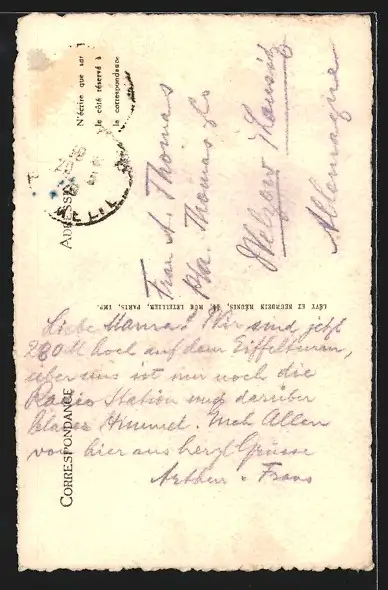 ADRESSE
N'écrire que sur
le côté réservé à
la correspondance
LIL
Frau A. Thomas
p/a. Thomas & Co
Welzow Lausitz
Allemagne
LÉVY ET NEURDEIN RÉUNIS, 44, RUE LETELLIER, PARIS, IMP.
CORRESPONDANCE
Liebe Mama! Wir sind jetzt
280 M hoch auf dem Eiffelturm,
über uns ist nur noch die
Radio Station und darüber
blauer Himmel. Allen
von hier aus herzl Grüsse
Arthur